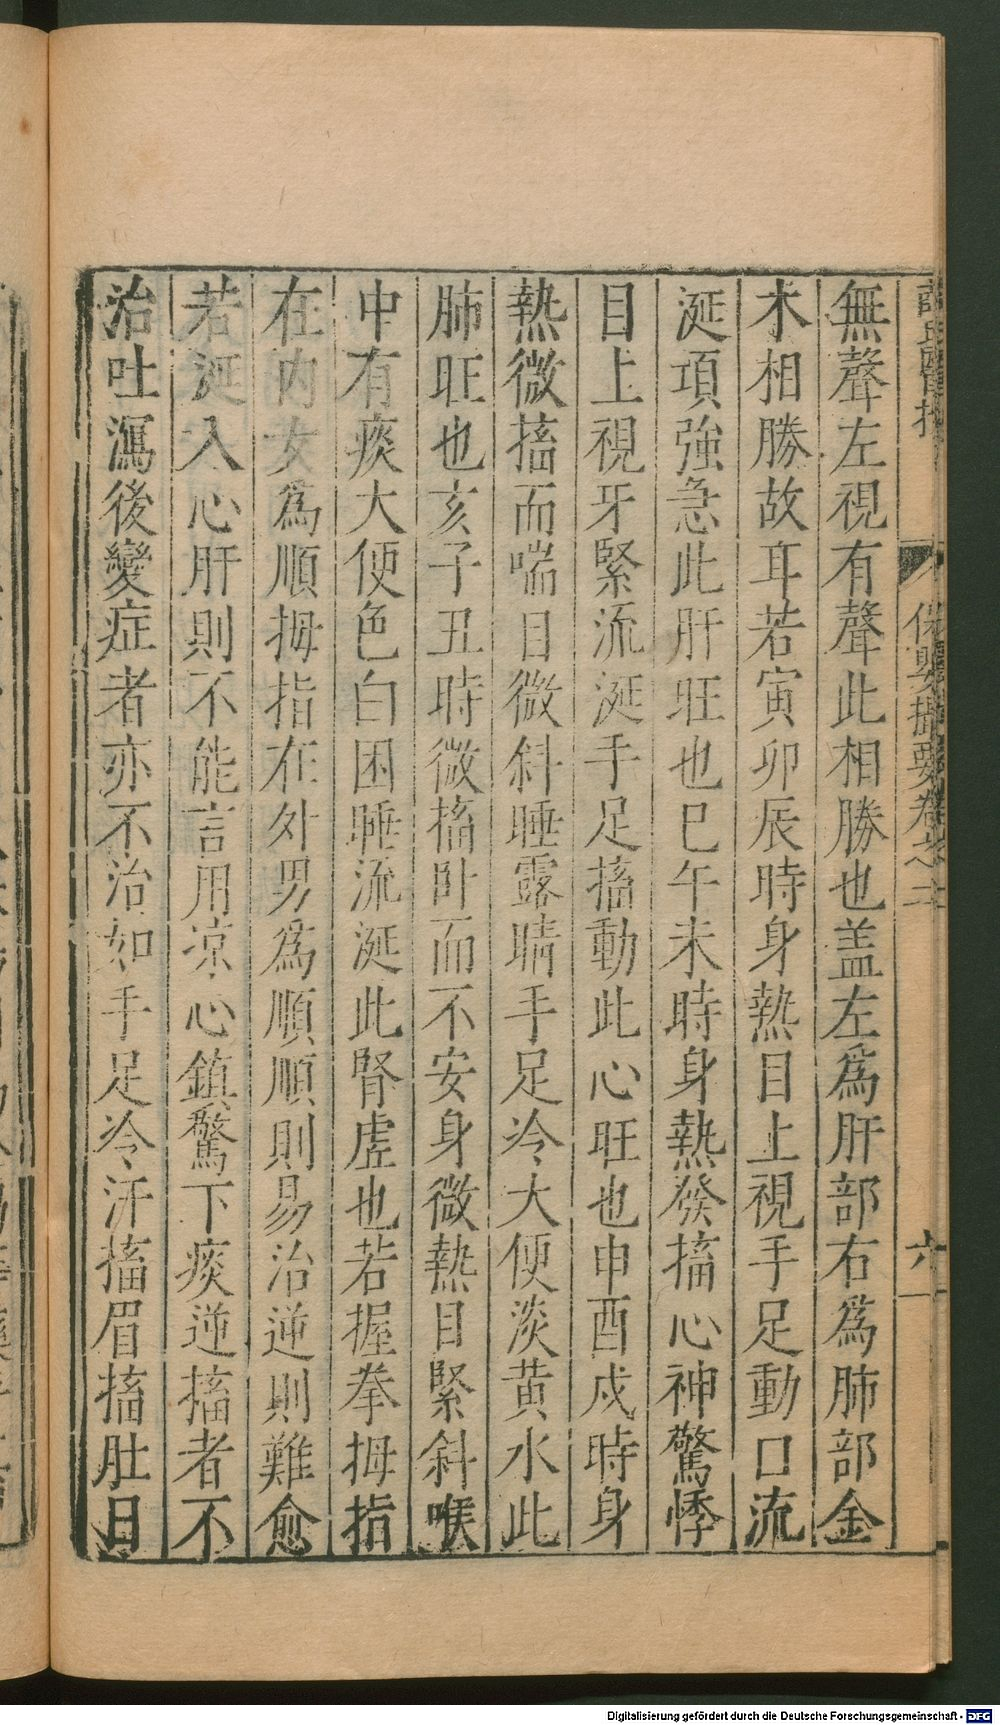 無聲左視有聲此相勝也盖左爲肝部右爲肺部金
木相勝故耳若寅卯辰時身熱目上視手足動口流
涎項強急此肝旺也巳午未時身熱發搐心神驚悸
目上視牙緊流涎手足搐動此心旺也申酉戍時身
熱微搐而喘目微斜睡露睛手足冷大便淡黄水此
肺旺也亥子丑時微搐卧而不安身微熱目緊斜喉
中有痰大便色白困睡流涎此腎虚也若握拳拇指
在内女爲順拇指在外男爲順順則易治逆則難愈
若涎入心肝則不能言用凉心鎮驚下痰逆搐者不
治吐瀉後變症者亦不治如手足冷汗搐眉搐肚日
保嬰撮要卷之二
六
Digitalisierung gefördert durch die Deutsche Forschungsgemeinschaft - DFG